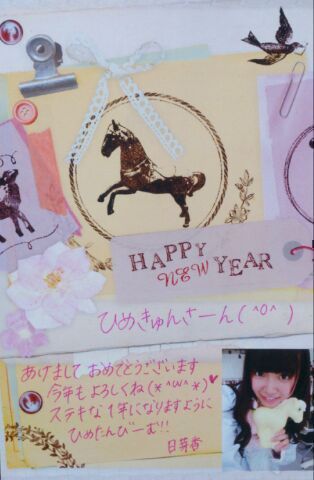 HAPPY
NEW YEAR
ひめきゅんさーん(^o^)
あけまして おめでとうございます
今年も よろしくね(*^ω^*)♥
ステキな1年になりますように
ひめたんびーむ!!
日芽香